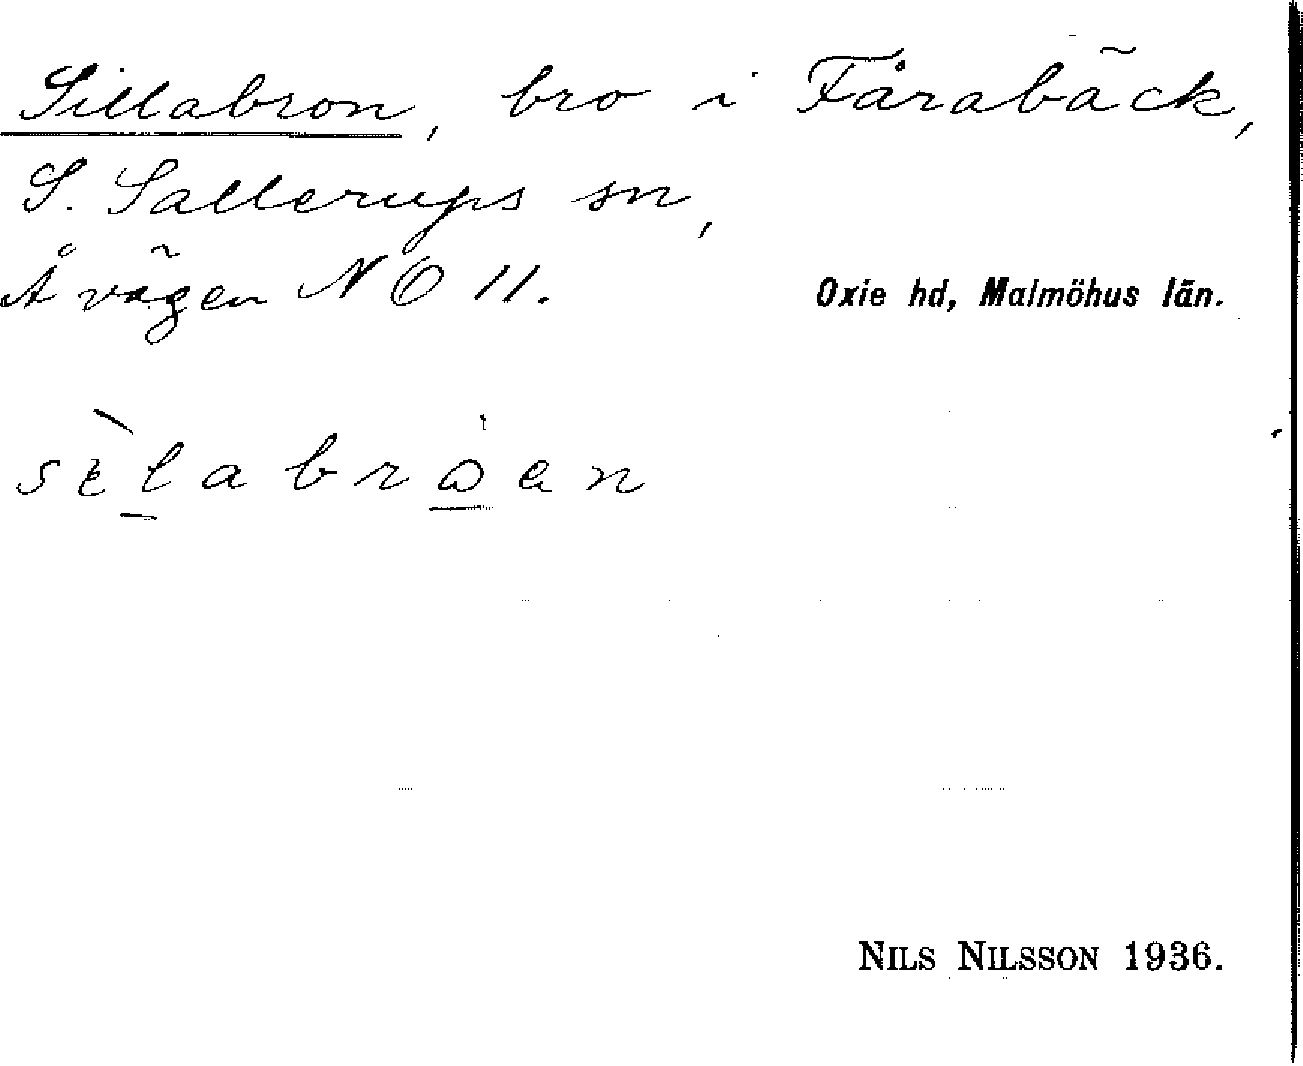 Sillabron, bro i Fårabäck,
S. Sallerups sn,
Å vägen NO 11.
Oxie hd, Malmöhus län.
NILS NILSSON 1936.